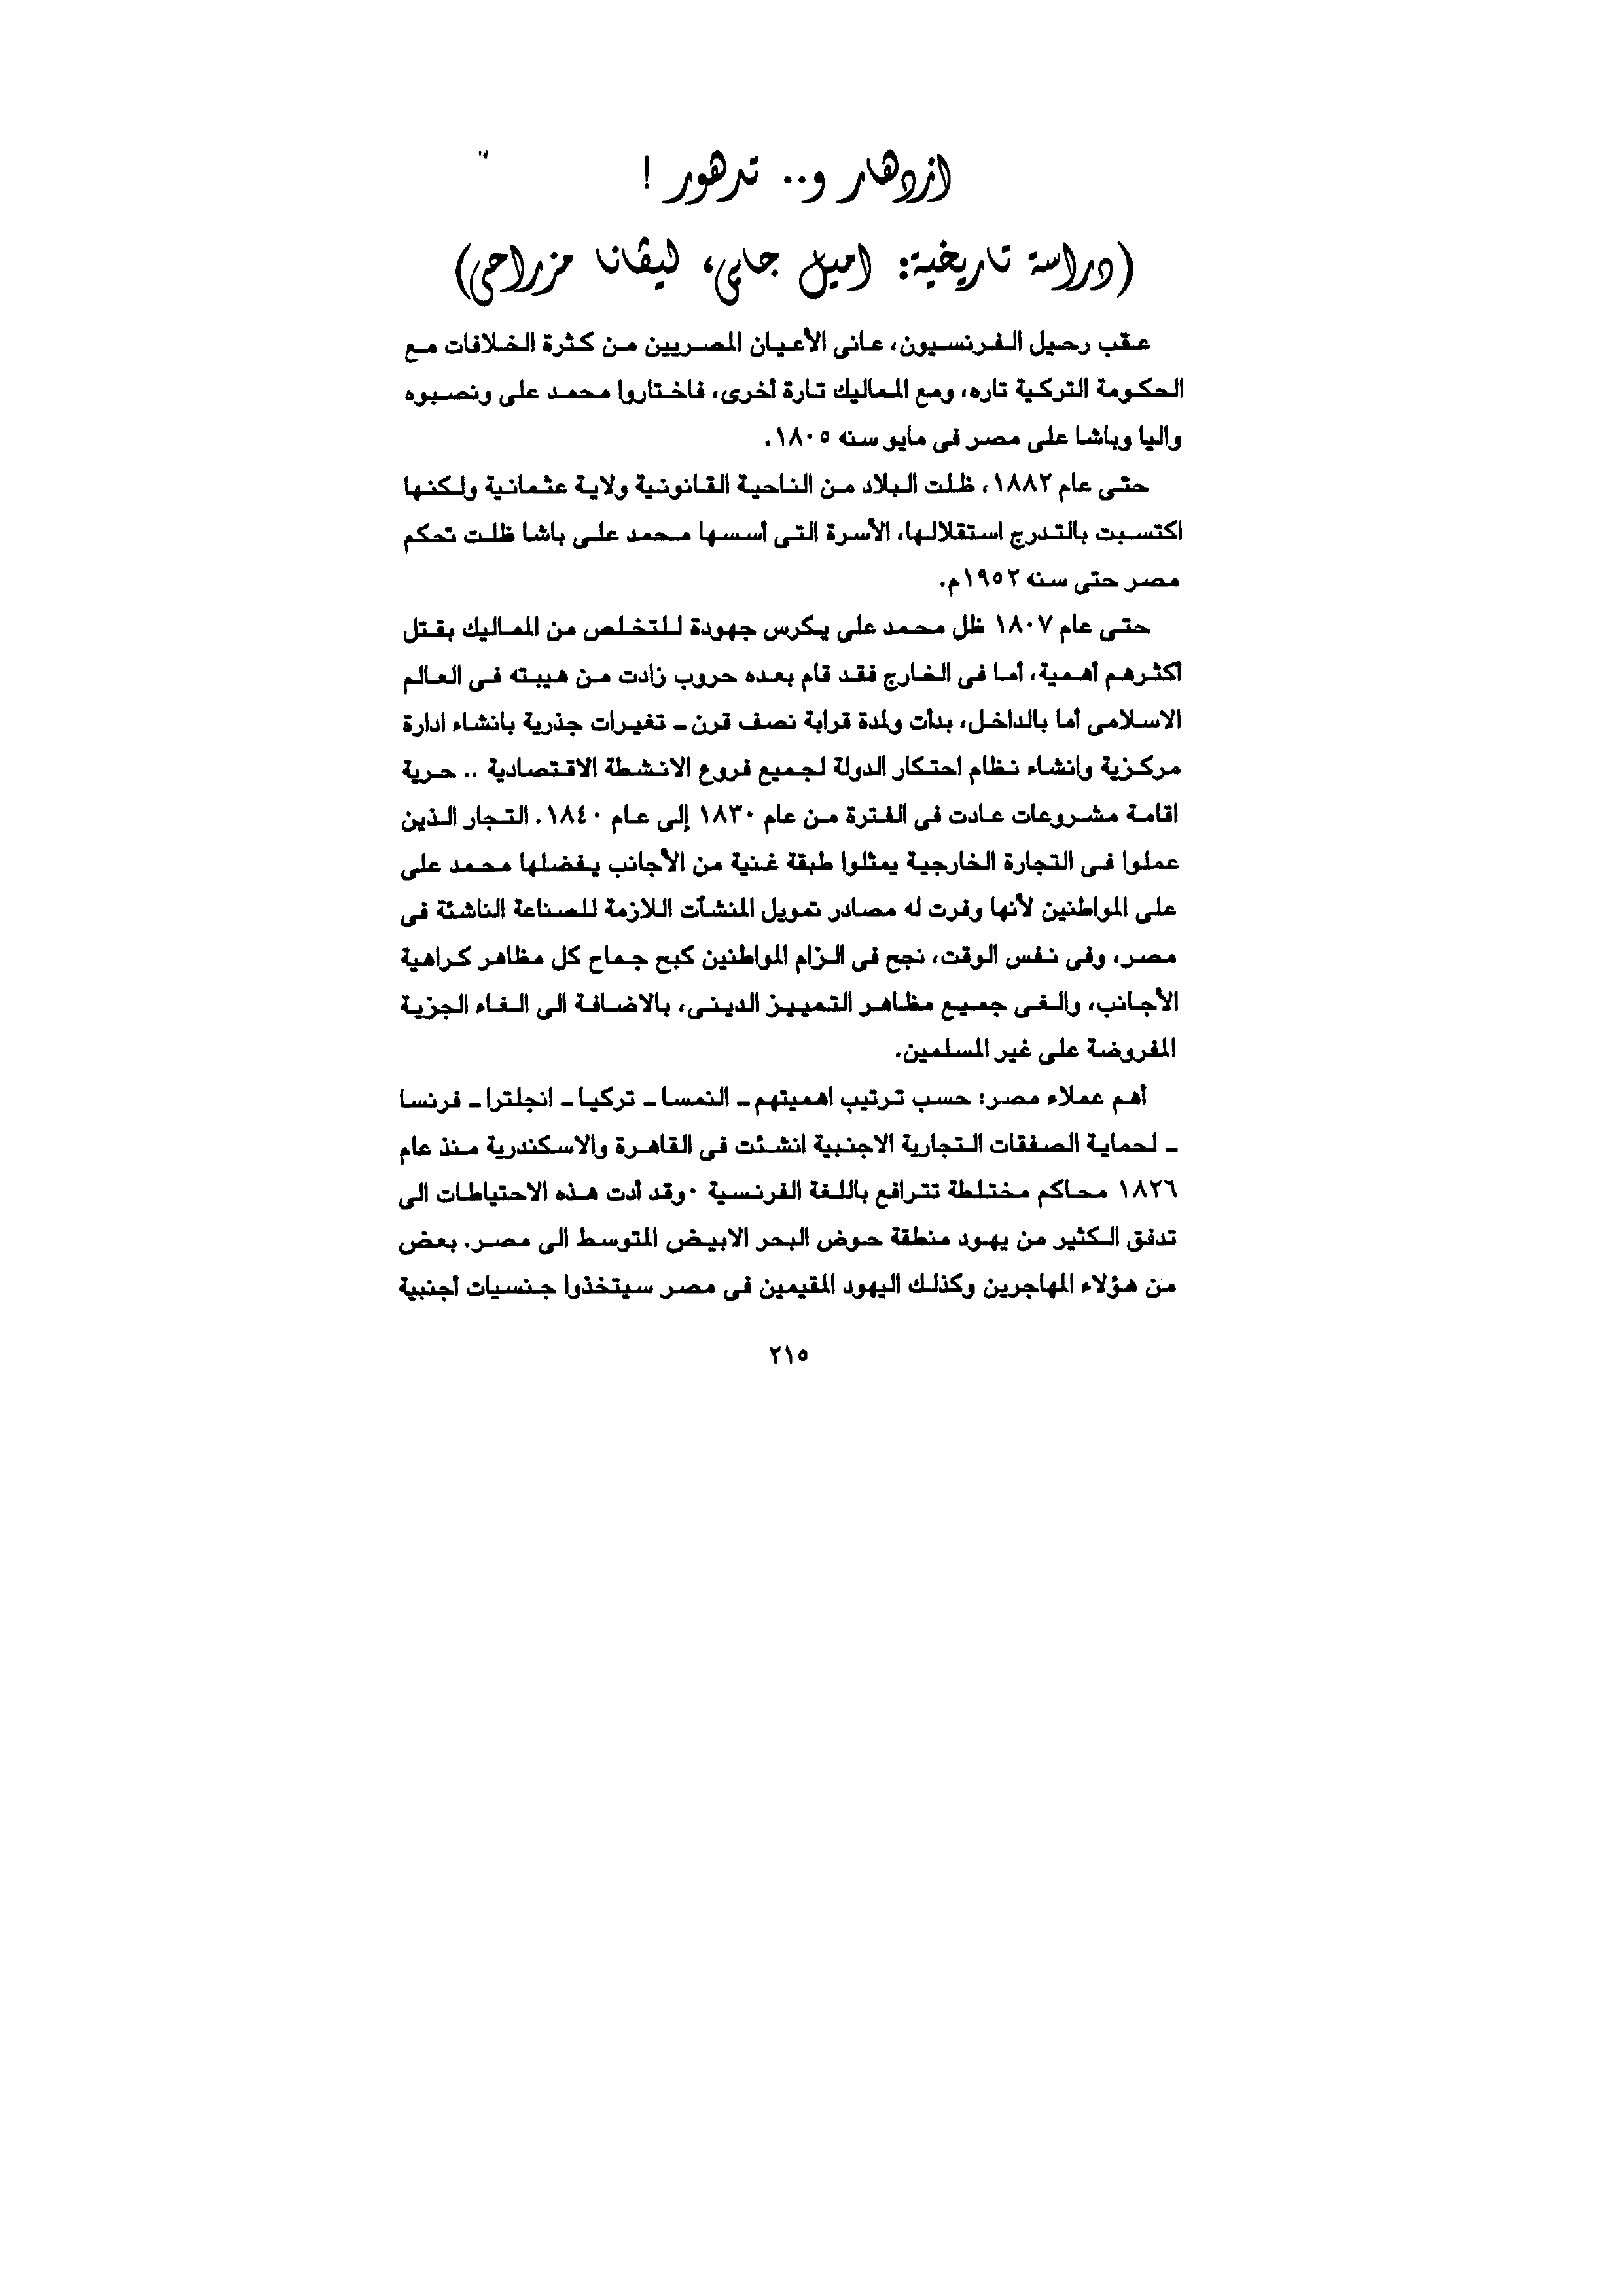 ازدهار و.. تدهور !
(دراسة تاريخية: اميل جابى، ليڤانا مزراحى)
عقب رحيل الفرنسيون، عانى الأعيان المصريين من كثرة الخلافات مع
الحكومة التركية تاره، ومع المماليك تارة أخرى، فاختاروا محمد على ونصبوه
واليا وباشا على مصر فى مايو سنه ١٨٠٥.
حتى عام ١٨٨٢، ظلت البلاد من الناحية القانونية ولاية عثمانية ولكنها
اكتسبت بالتدرج استقلالها، الأسرة التى أسسها محمد على باشا ظلت تحكم
مصر حتى سنه ١٩٥٢م.
حتى عام ١٨٠٧ ظل محمد على يكرس جهودة للتخلص من المماليك بقتل
أكثرهم أهمية، أما فى الخارج فقد قام بعده حروب زادت من هيبته فى العالم
الاسلامى أما بالداخل، بدأت ولمدة قرابة نصف قرن ـ تغيرات جذرية بانشاء ادارة
مركزية وانشاء نظام احتكار الدولة لجميع فروع الانشطة الاقتصادية .. حرية
اقامة مشروعات عادت فى الفترة من عام ١٨٣٠ إلى عام ١٨٤٠. التجار الذين
عملوا فى التجارة الخارجية يمثلوا طبقة غنية من الأجانب يفضلها محمد على
على المواطنين لأنها وفرت له مصادر تمويل المنشآت اللازمة للصناعة الناشئة فى
مصر، وفى نفس الوقت، نجح فى الزام المواطنين كبح جماح كل مظاهر كراهية
الأجانب، والغى جميع مظاهر التمييز الدينى، بالاضافة الى الغاء الجزية
المفروضة على غير المسلمين.
أهم عملاء مصر: حسب ترتيب اهميتهم ـ النمسا ـ تركيا ـ انجلترا ـ فرنسا
ـ لحماية الصفقات التجارية الاجنبية انشئت فى القاهرة والاسكندرية منذ عام
١٨٢٦ محاكم مختلطة تترافع باللغة الفرنسية ٠وقد أدت هذه الاحتياطات الى
تدفق الكثير من يهود منطقة حوض البحر الابيض المتوسط الى مصر. بعض
من هؤلاء المهاجرين وكذلك اليهود المقيمين فى مصر سيتخذوا جنسيات أجنبية
٢١٥